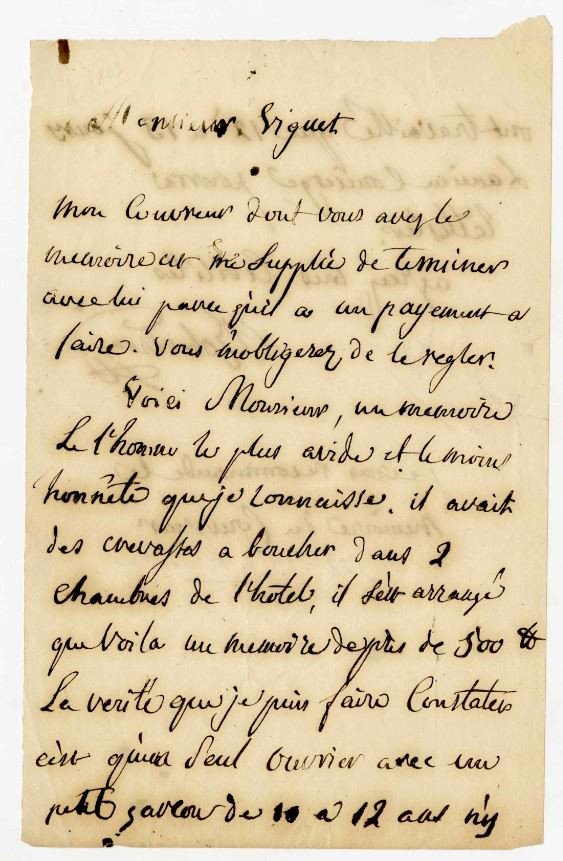 Monsieur Viguet
Mon Couvreur dont vous avez le
memoire et me supplie de terminer
avec lui parce qu'il a un payement a
faire. Vous m'obligerez de le regler.
Voici Monsieur, un memoire
de l'homme le plus avide et le moins
honnête que je connaisse. il avait
des crevasses a boucher dans 2
chambres de l'hotel, il s'est arrangé
que voila un memoire de plus de 500 tt
La verité que je puis faire Constater
c'est qu'un seul ouvrier avec un
petit garcon de 10 a 12 ans n'y